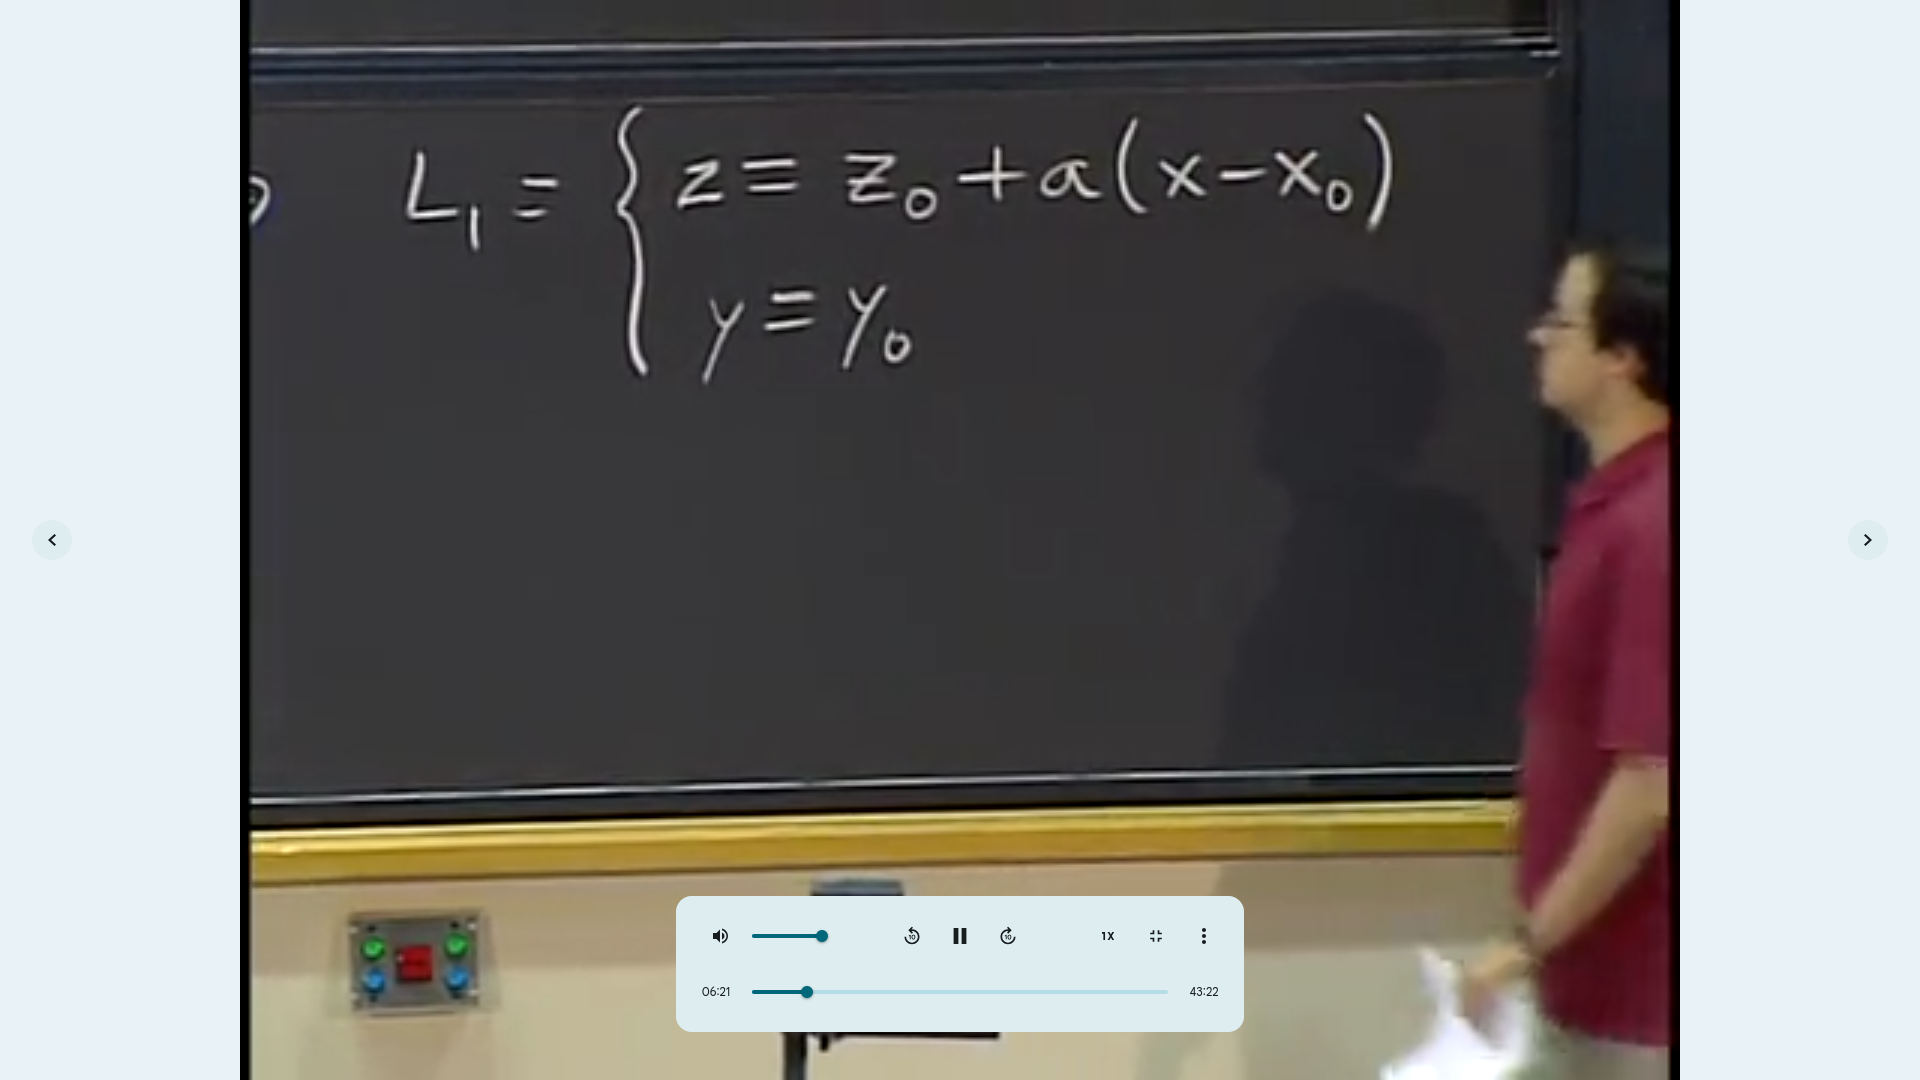 L₁ = { z = z₀ + a(x - x₀)
y = y₀
1X
06:21
43:22